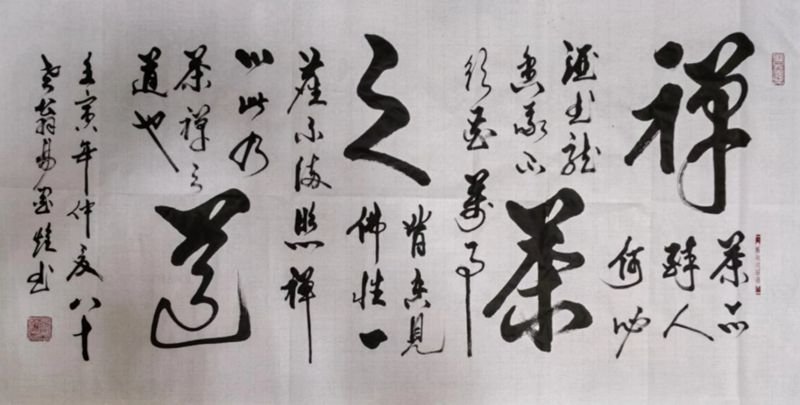 禅
茶亦
醉人
何必
酒书能
香我不
须花万事
茶
皆空见
佛性一
之
尘不染照禅
心此乃
茶禅之
道也
道
壬寅年仲夏八十
老翁易墨书